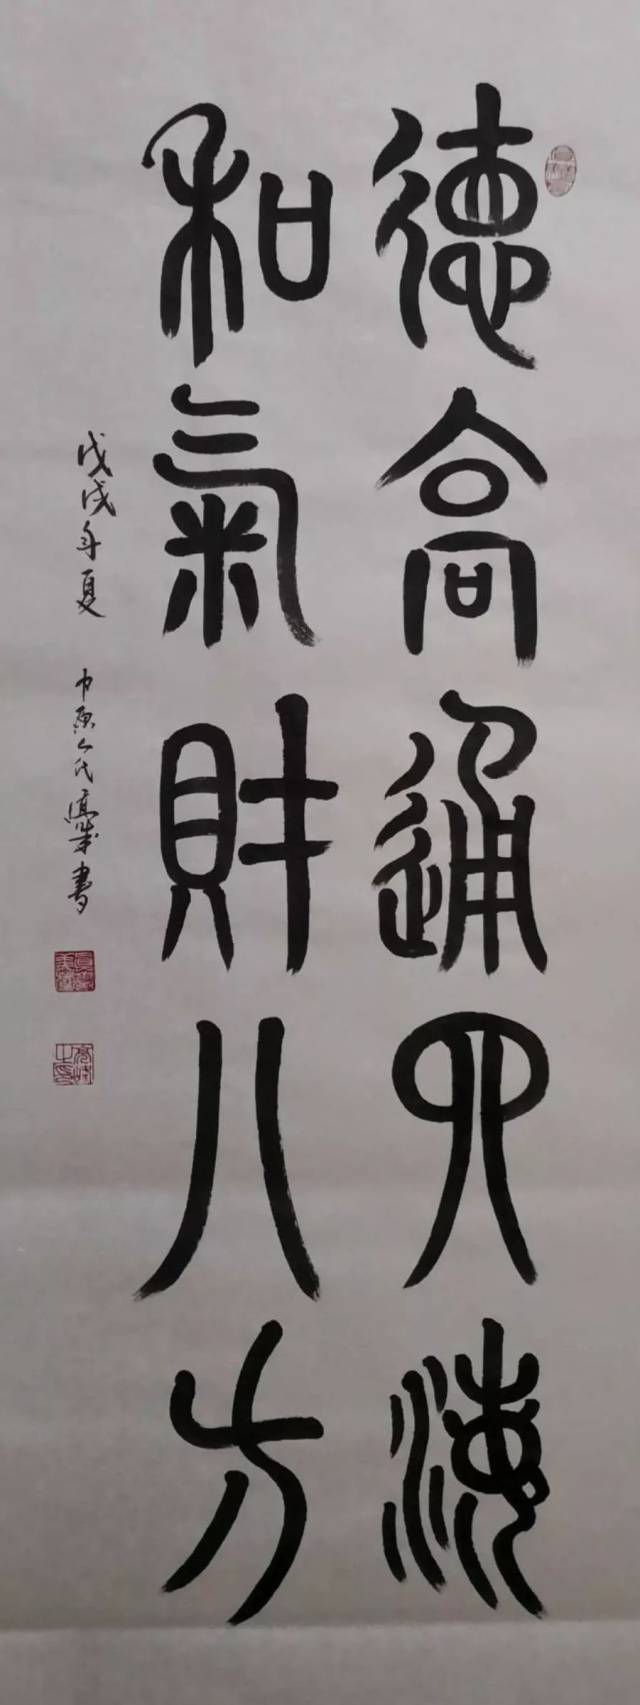 德高通四海
和氣財八方
戊戌年夏 中原人氏 書